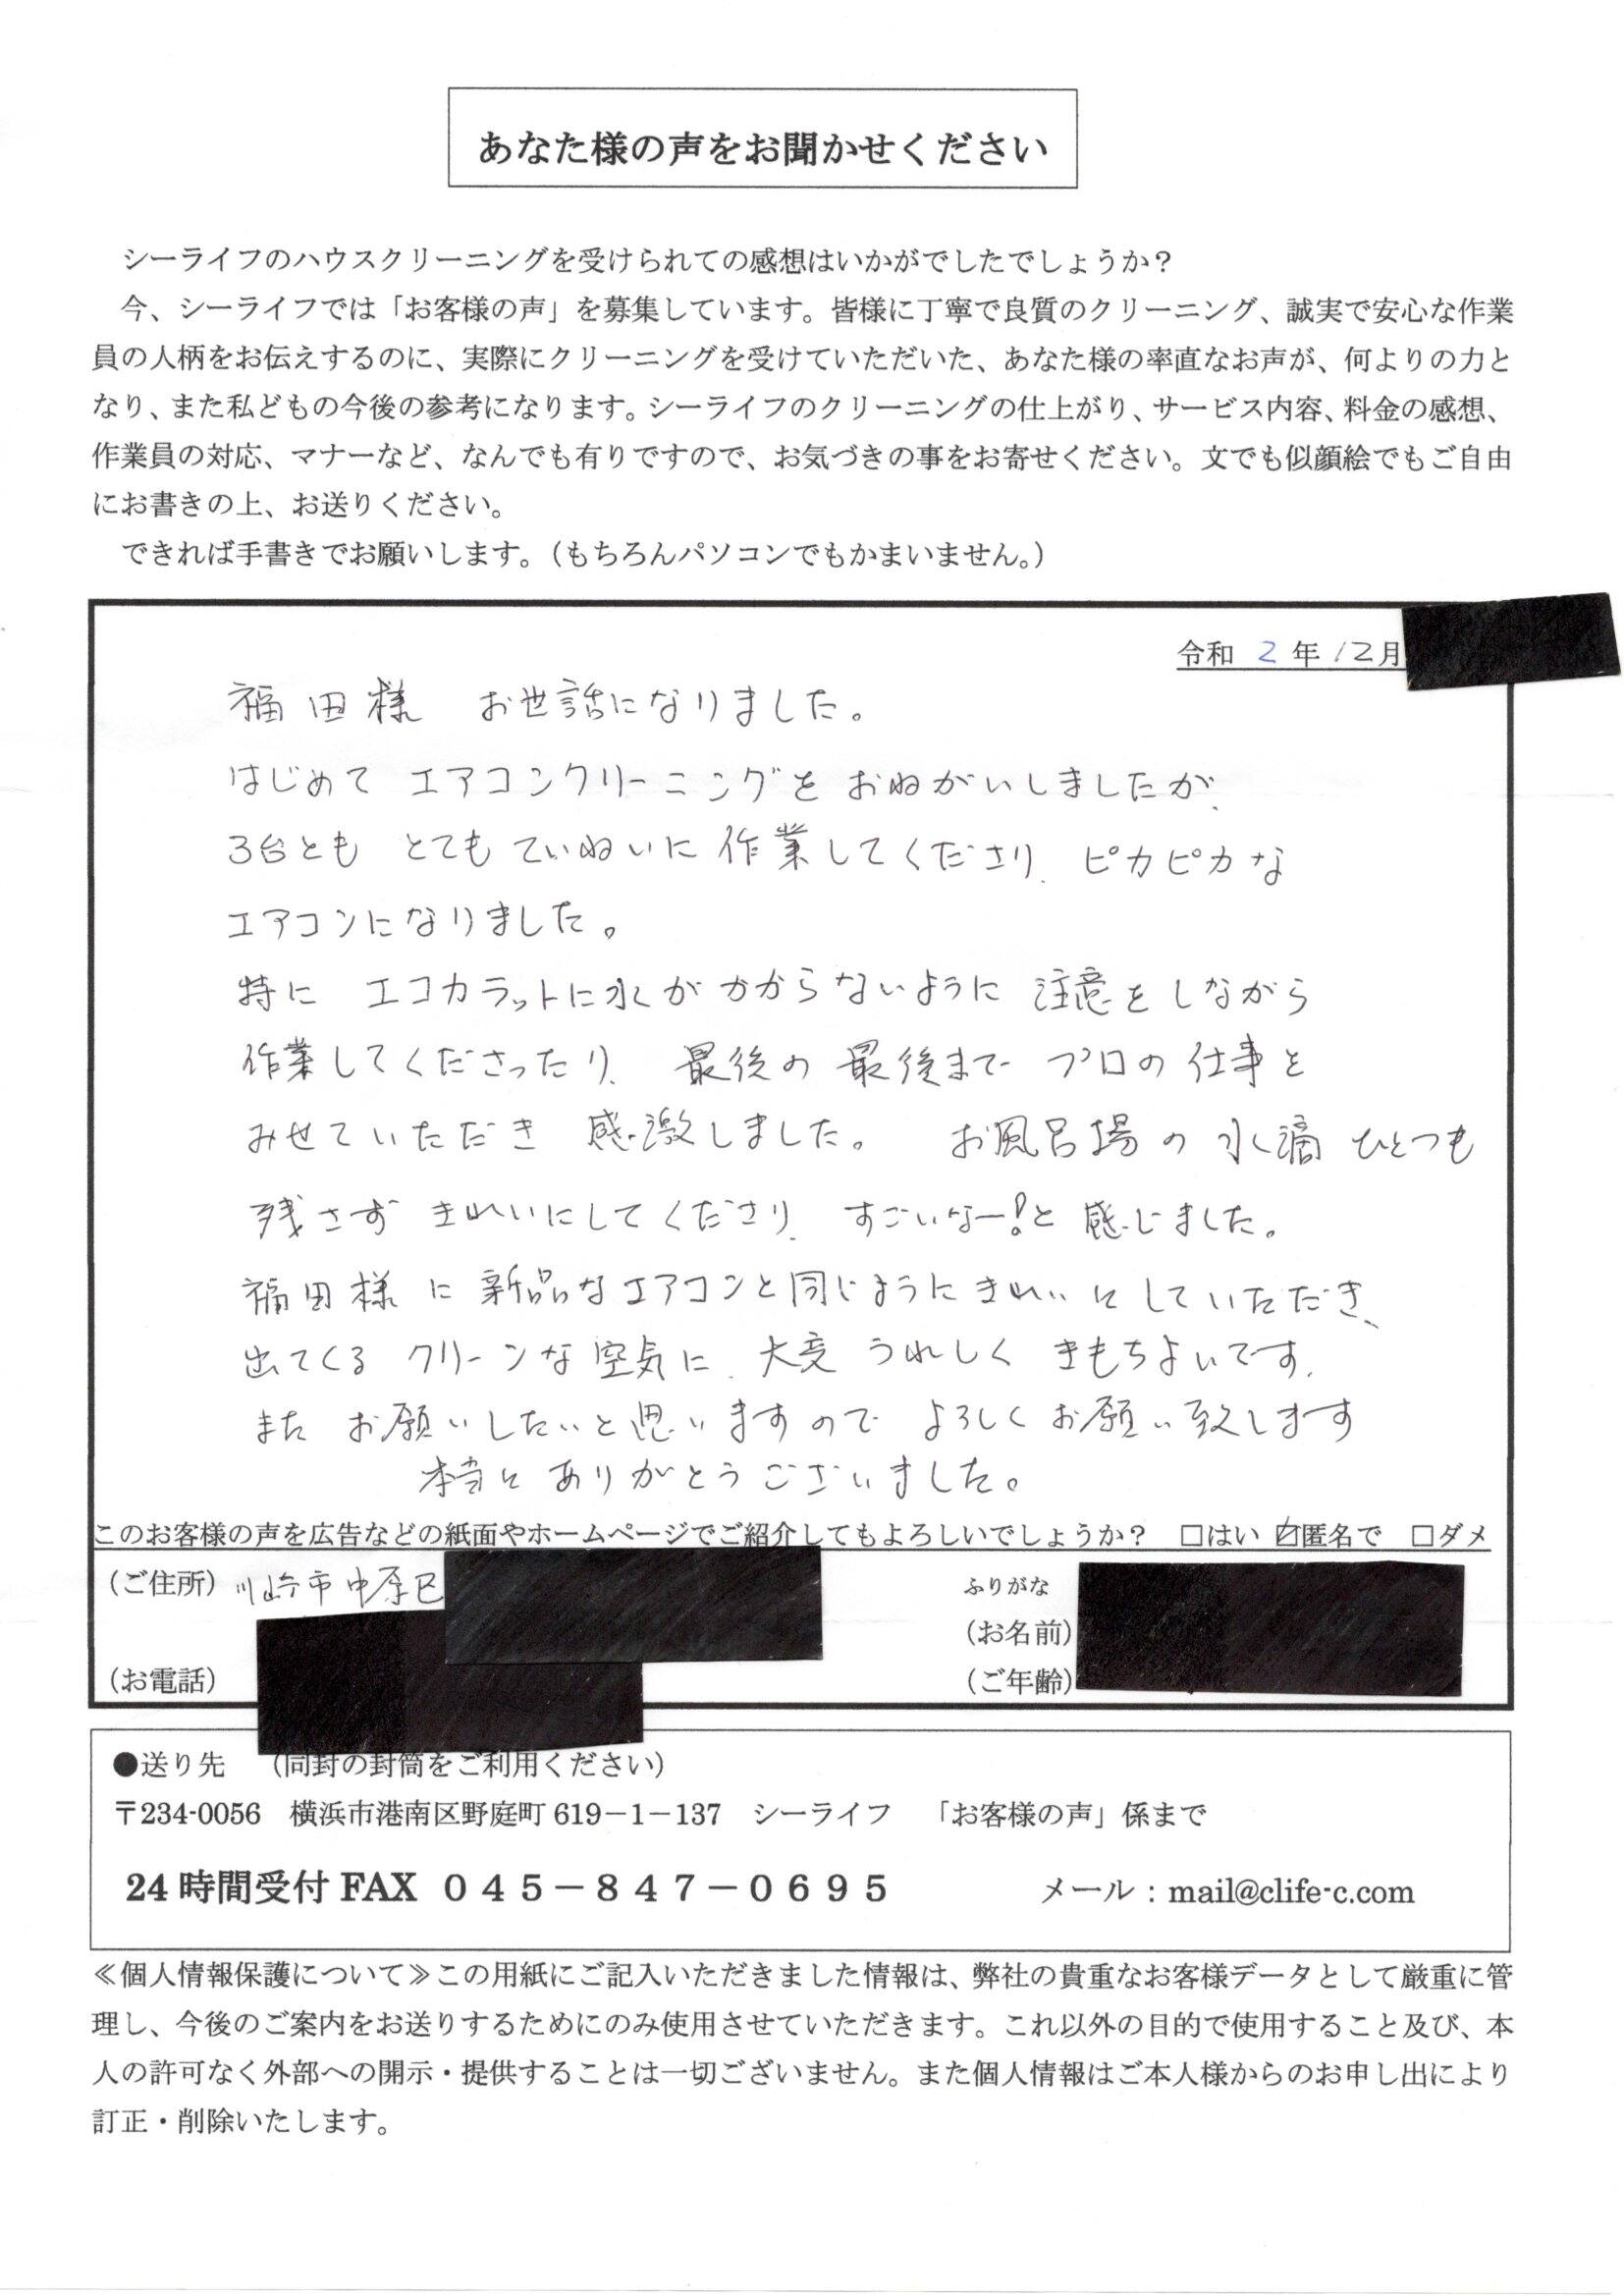 あなた様の声をお聞かせください
シーライフのハウスクリーニングを受けられての感想はいかがでしたでしょうか？
今、シーライフでは「お客様の声」を募集しています。皆様に丁寧で良質のクリーニング、誠実で安心な作業
員の人柄をお伝えするのに、実際にクリーニングを受けていただいた、あなた様の率直なお声が、何よりの力と
なり、また私どもの今後の参考になります。シーライフのクリーニングの仕上がり、サービス内容、料金の感想、
作業員の対応、マナーなど、なんでも有りですので、お気づきの事をお寄せください。文でも似顔絵でもご自由
にお書きの上、お送りください。
できれば手書きでお願いします。（もちろんパソコンでもかまいません。）
令和 2 年 12月
福田様 お世話になりました。
はじめて エアコンクリーニングを おねがいしましたが、
3台とも とても ていねいに 作業してくださり、ピカピカな
エアコンになりました。
特に エコカラットに水が かからないように 注意をしながら
作業してくださったり、最後の最後まで プロの仕事を
みせていただき 感激しました。 お風呂場の水滴 ひとつも
残さず きれいにしてくださり、すごいなー!と 感じました。
福田様に 新品なエアコンと同じようにきれいにしていただき、
出てくる クリーンな空気に、大変 うれしく きもちよいです。
また お願いしたいと思いますので よろしくお願い致します
本当に ありがとうございました。
このお客様の声を広告などの紙面やホームページでご紹介してもよろしいでしょうか？ □はい ☑匿名で □ダメ
（ご住所）川崎市中原区
ふりがな
（お名前）
（お電話）
（ご年齢）
●送り先 （同封の封筒をご利用ください）
〒234-0056 横浜市港南区野庭町 619－1－137 シーライフ 「お客様の声」係まで
24 時間受付 FAX ０４５－８４７－０６９５ メール：mail@clife-c.com
≪個人情報保護について≫この用紙にご記入いただきました情報は、弊社の貴重なお客様データとして厳重に管
理し、今後のご案内をお送りするためにのみ使用させていただきます。これ以外の目的で使用すること及び、本
人の許可なく外部への開示・提供することは一切ございません。また個人情報はご本人様からのお申し出により
訂正・削除いたします。